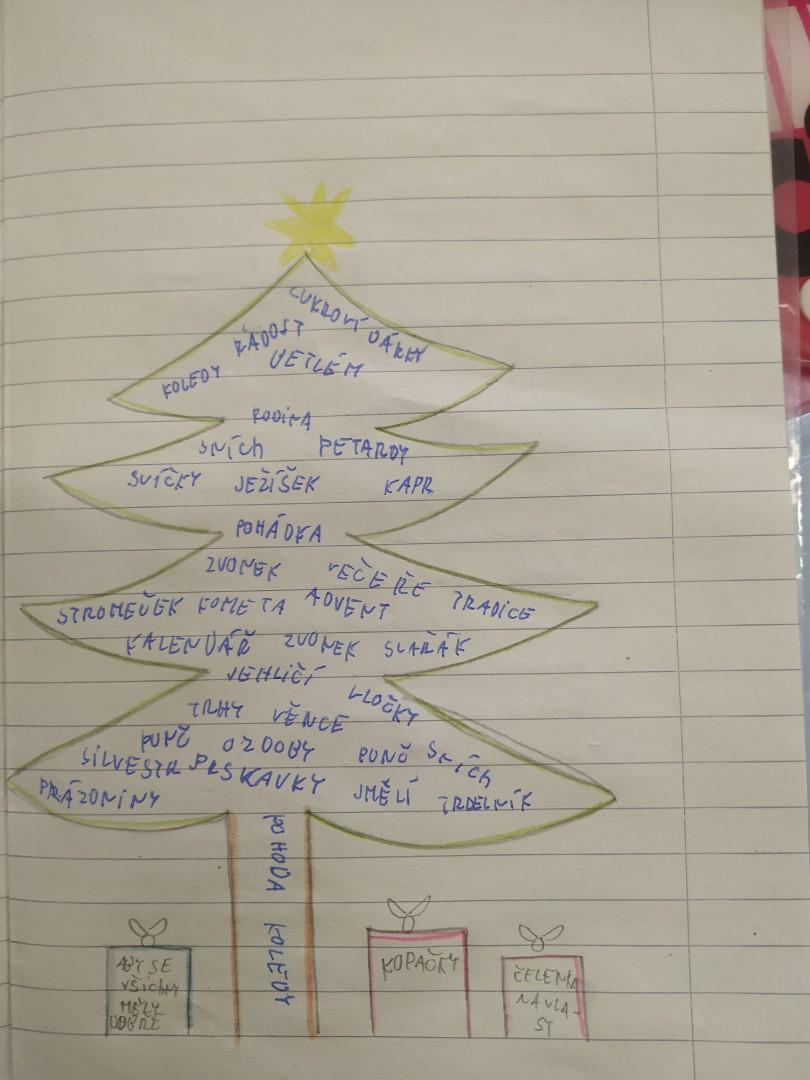 CUKROVÍ DÁRKY
RADOST
BETLÉM
KOLEDY
RODINA
SNÍCH PETARDY
SVÍČKY JEŽÍŠEK KAPR
POHÁDKA
ZVONEK VEČEŘE
STROMEČEK KOMETA ADVENT TRADICE
KALENDÁŘ ZVONEK SVAŘÁK
JEHLIČÍ
VLOČKY
TRHY VĚNCE
PUNČ OZDOBY PUNČ SNÍCH
SILVESTR PRSKAVKY
PRÁZDNINY JMĚLÍ TRDELNÍK
POHODA KOLEDY
ABY SE
VŠICHNI
MĚLY
DOBŘE
KOPAČKY
ČELENKA
NA VLA-
SY